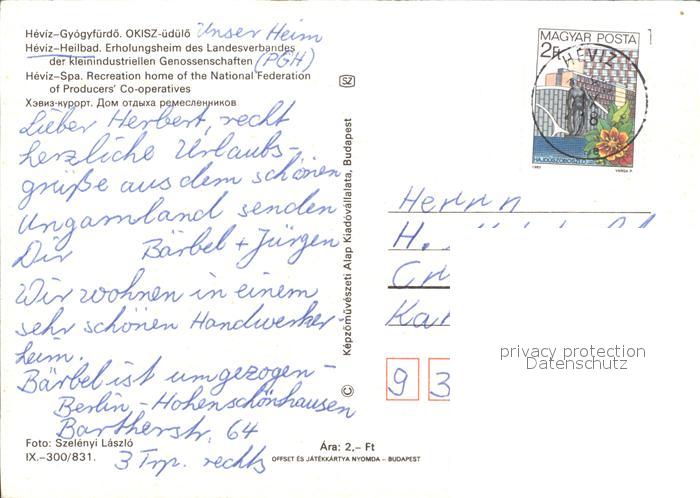 Hévíz-Gyógyfürdő. OKISZ-üdülő Unser Heim
Hévíz-Heilbad. Erholungsheim des Landesverbandes
der kleinindustriellen Genossenschaften (PGH)
Hévíz-Spa. Recreation home of the National Federation
of Producers' Co-operatives
Хэвиз-курорт. Дом отдыха ремесленников
Lieber Herbert, recht
herzliche Urlaubs-
grüße aus dem schönen
Ungarnland senden
Dir Bärbel + Jürgen
Wir wohnen in einem
sehr schönen Handwerker-
heim.
Bärbel ist umgezogen -
Berlin - Hohenschönhausen
Bartherstr. 64
3 Trp. rechts
Foto: Szelényi László
IX.-300/831.
Ára: 2,- Ft
OFFSET ÉS JÁTÉKKÁRTYA NYOMDA - BUDAPEST
SZ
© Képzőművészeti Alap Kiadóvállalata, Budapest
MAGYAR POSTA
2Ft
HÉVÍZ
18
HAJDÚSZOBOSZLÓ
1983 VARGA P.
Herrn
H.
Kar
9 3
privacy protection
Datenschutz